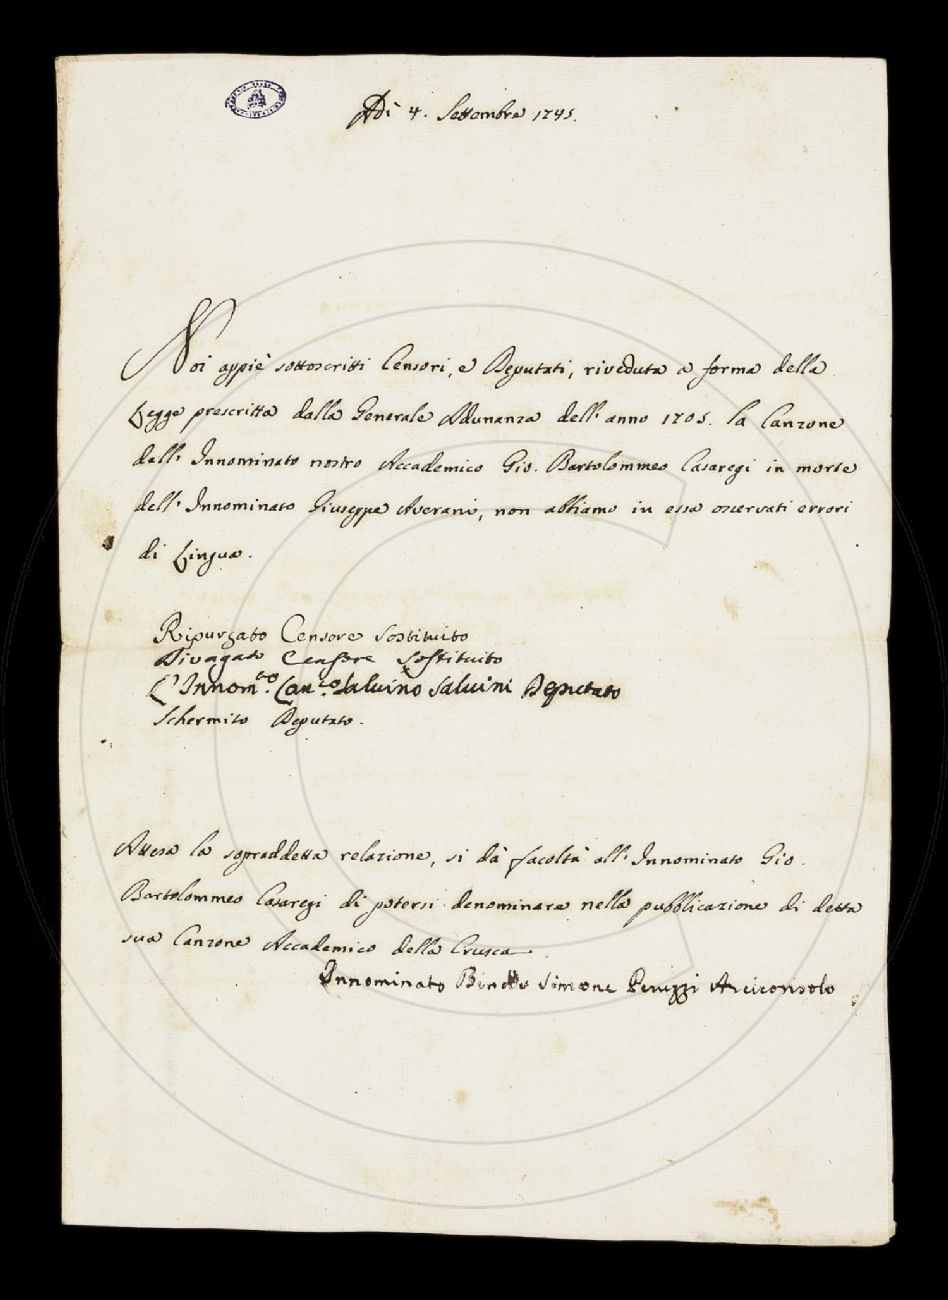 Adì 4. Settembre 1745.
Noi appiè sottoscritti Censori, e Deputati, riveduta a forma della
Legge prescritta dalla Generale Adunanza dell' anno 1705. la Canzone
dell' Innominato nostro Accademico Gio. Bartolommeo Casaregi in morte
dell' Innominato Giuseppe Averani, non abbiamo in essa osservati errori
di Lingua.
Ripurgato Censore Sostituito
Divagato Censore Sostituito
L'Innom.to Can.co Salvino Salvini Deputato
Schermito Deputato.
Attesa la sopraddetta relazione, si dà facoltà all' Innominato Gio.
Bartolommeo Casaregi di potersi denominare nella pubblicazione di detta
sua Canzone Accademico della Crusca.
Innominato Bindo Simone Peruzzi Arciconsolo